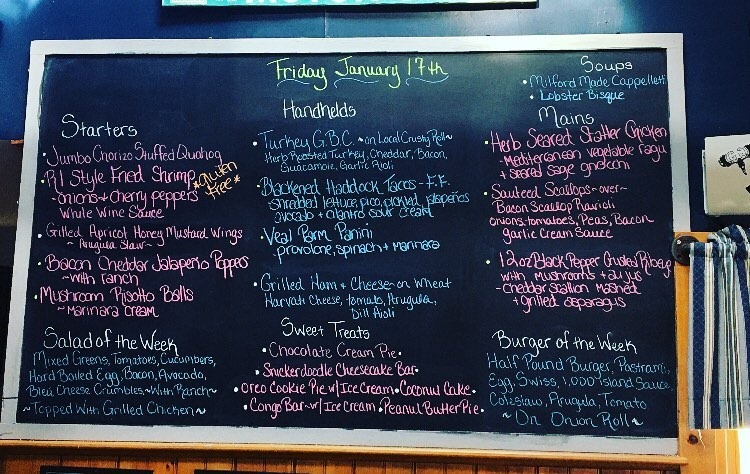 Friday January 17th
Starters
Jumbo Chorizo Stuffed Quahog
RI Style Fried Shrimp
*Gluten Free*
-onions + cherry peppers
White Wine Sauce
Grilled Apricot Honey Mustard Wings
~ Arugula Slaw ~
Bacon Cheddar Jalapeño Poppers
~with ranch
Mushroom Risotto Balls
~marinara cream
Salad of the Week
Mixed Greens, Tomatoes, Cucumbers,
Hard Boiled Egg, Bacon, Avocado,
Bleu Cheese Crumbles ~With Ranch~
~Topped With Grilled Chicken~
Handhelds
Turkey G.B.C. ~on Local Crusty Roll~
Herb Roasted Turkey, Cheddar, Bacon,
Guacamole, Garlic Aioli
Blackened Haddock Tacos - F.F.
-shredded lettuce, pico, pickled jalapeños
avocado + cilantro sour cream
Veal Parm Panini
provolone, spinach + marinara
Grilled Ham & Cheese - on Wheat
Havati Cheese, tomato, Arugula,
Dill Aioli
Sweet Treats
Chocolate Cream Pie
Snickerdoodle Cheesecake Bar
Oreo Cookie Pie w/ Ice Cream • Coconut Cake
Congo Bar ~ w/ Ice Cream • Peanut Butter Pie
Soups
Milford Made Cappelletti
Lobster Bisque
Mains
Herb Seared Statler Chicken
-Mediterranean vegetable ragu
+ seared sage gnocchi
Sauteed Scallops ~over~
Bacon Scallop Ravioli
onions, tomatoes, Peas, Bacon
garlic Cream Sauce
12oz Black Pepper Crusted Ribeye
with mushrooms + au jus
-cheddar scallion mashed
+ grilled asparagus
Burger of the Week
Half Pound Burger, Pastrami,
Egg, Swiss, 1,000 Island Sauce
Coleslaw, Arugula, Tomato
~ On Onion Roll ~